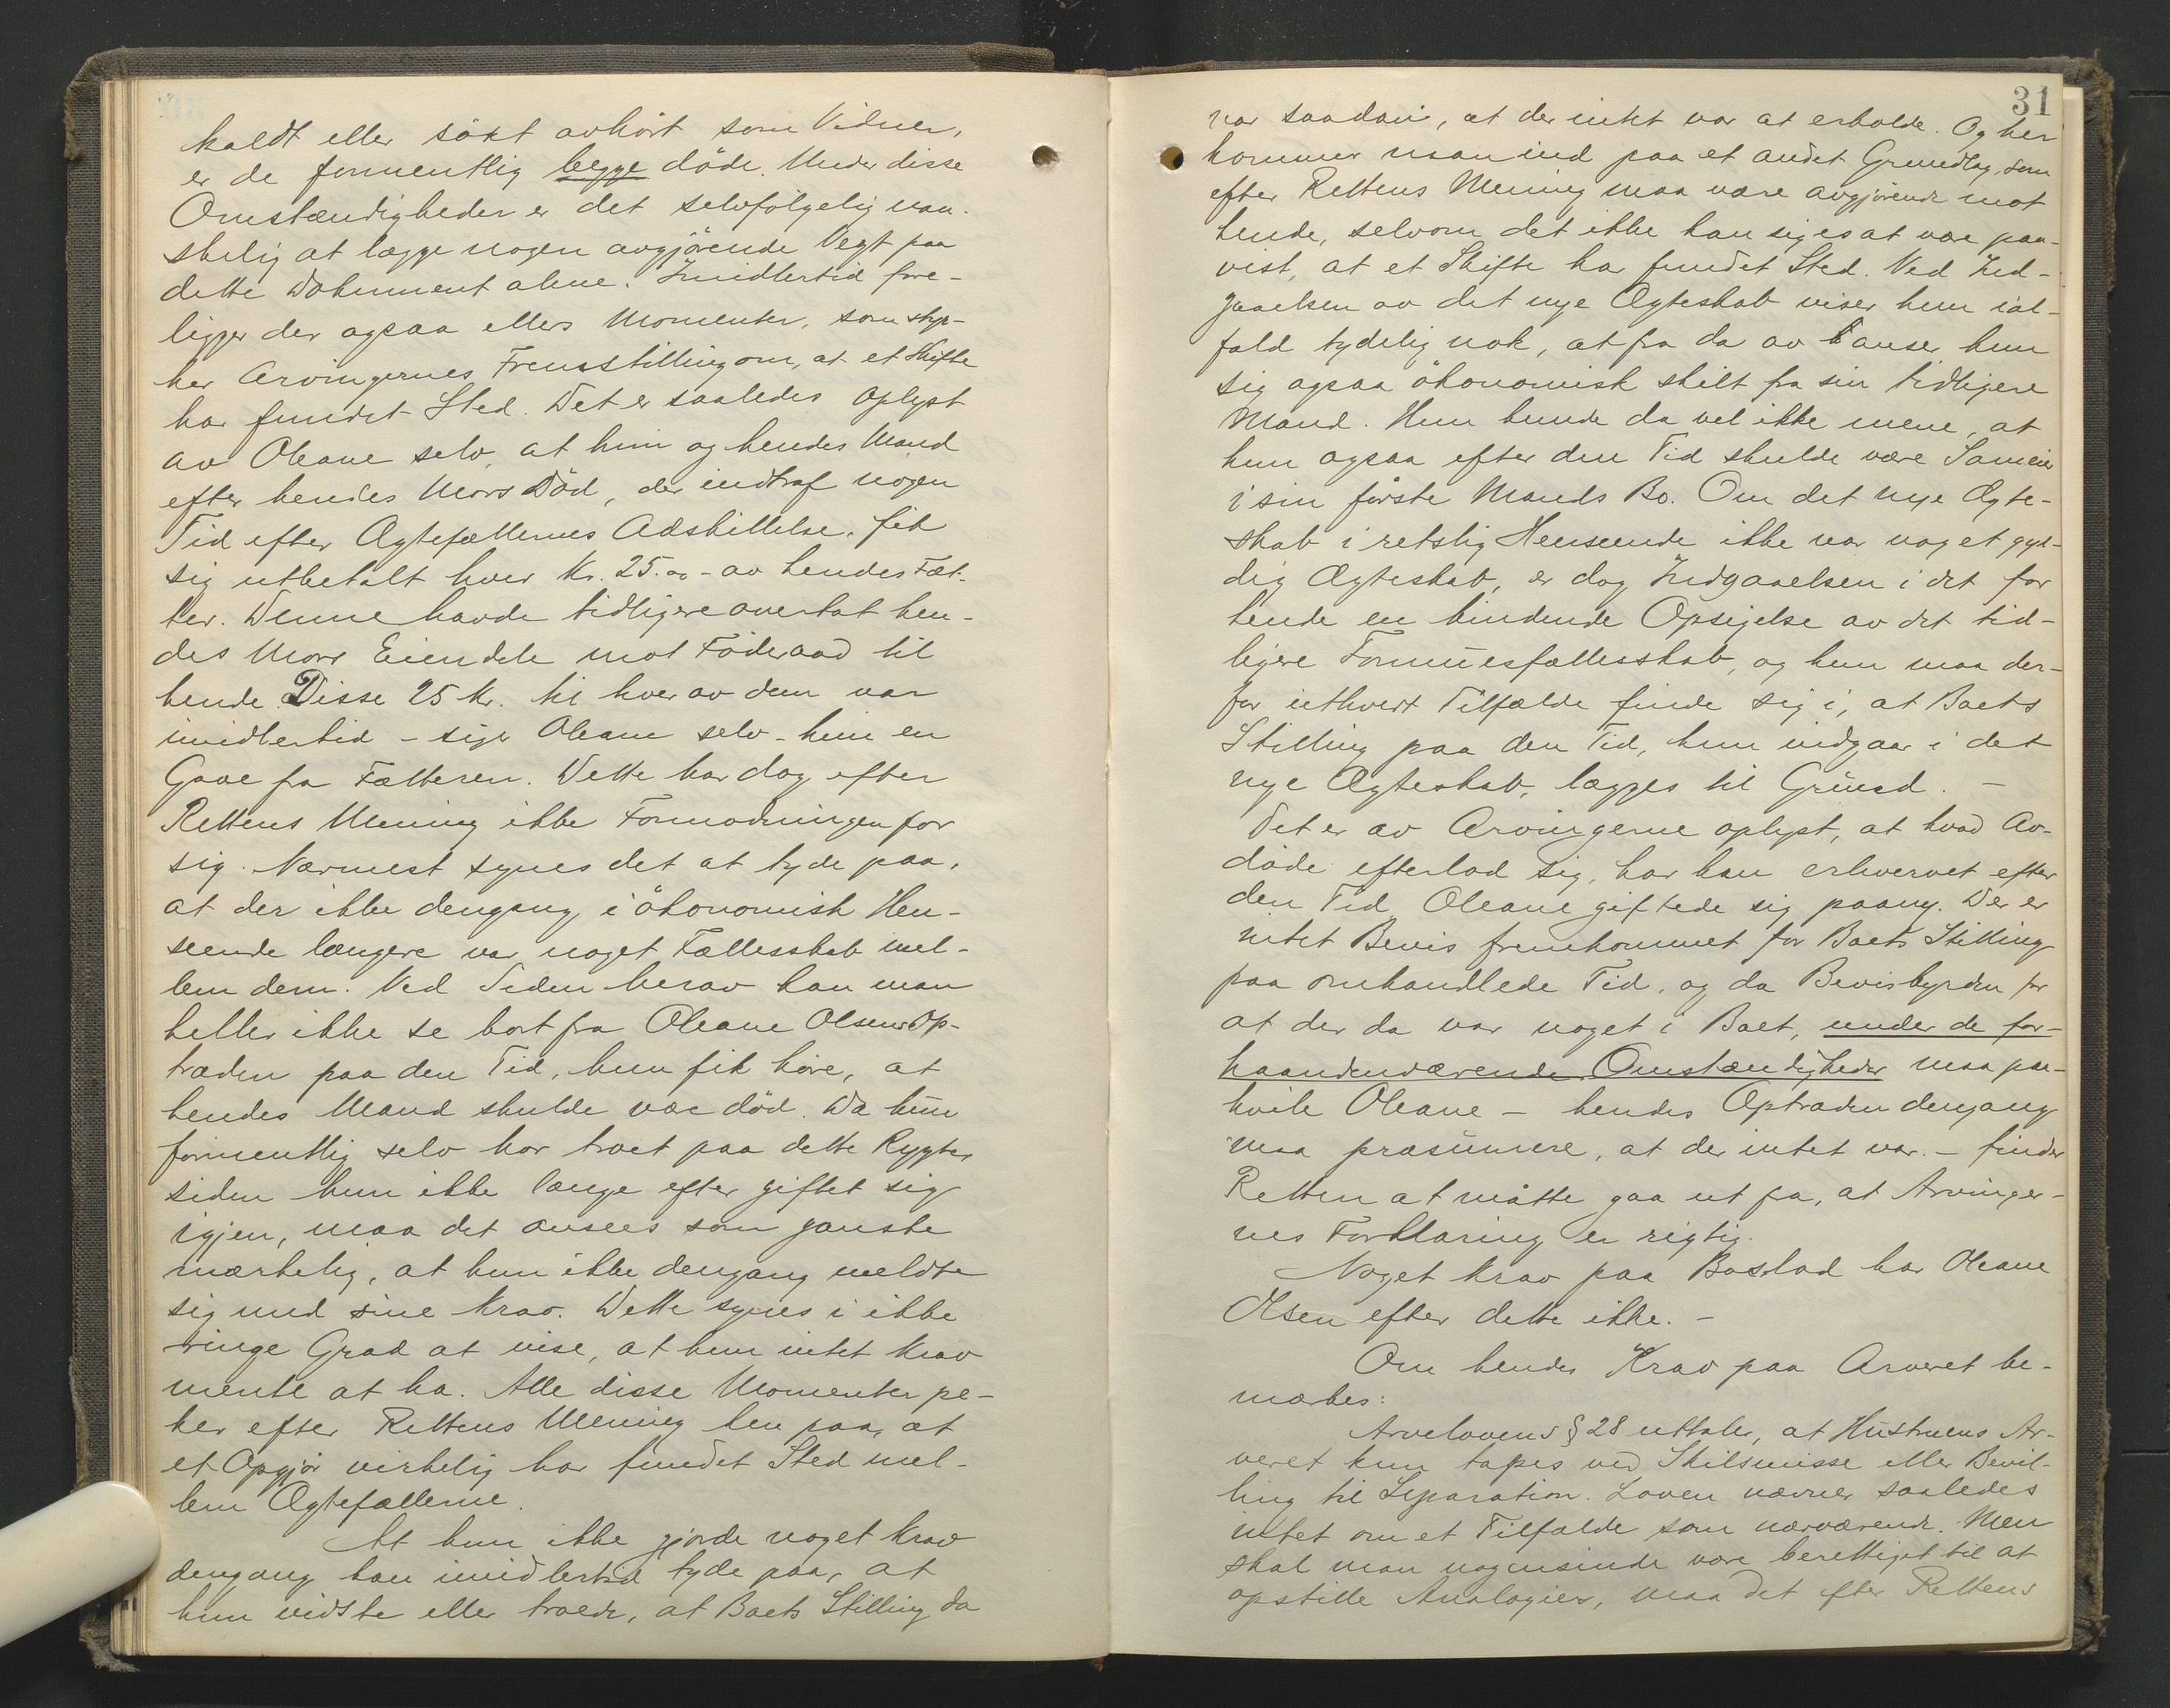 kaldt eller søkt avhørt som Vidner,
er de formentlig begge døde. Under disse
Omstændigheder er det selvfølgelig van-
skelig at lægge nogen avgjørende Vegt paa
dette Dokument alene. Imidlertid fore-
ligger der ogsaa ellers Momenter, som styr-
ker Arvingernes Fremstilling om, at et Skifte
har fundet Sted. Det er saaledes oplyst
av Oleane selv, at hun og hendes Mand
efter hendes Mors Død, der indtraf nogen
Tid efter Ægtefællernes Adskillelse, fik
sig utbetalt hver Kr. 25.00 - av hendes Fæt-
ter. Denne havde tidligere overtat hen-
des Mors Eiendele mot Føderaad til
hende. Disse 25 Kr. til hver av dem var
imidlertid - siger Oleane selv - kun en
Gave fra Fætteren. Dette har dog efter
Rettens Mening ikke Formodningen for
sig. Nærmest synes det at tyde paa,
at der ikke dengang i økonomisk Hen-
seende længere var noget Fællesskab mel-
lem dem. Ved Siden herav kan man
heller ikke se bort fra Oleane Olsens Op-
træden paa den Tid, hun fik høre, at
hendes Mand skulde være død. Da hun
formentlig selv har troet paa dette Rygte,
siden hun ikke længe efter giftet sig
igjen, maa det ansees som ganske
mærkelig, at hun ikke dengang meldte
sig med sine Krav. Dette synes i ikke
ringe Grad at vise, at hun intet Krav
mente at ha. Alle disse Momenter pe-
ker efter Rettens Mening hen paa, at
et Opgjør virkelig har fundet Sted mel-
lem Ægtefællerne.
At hun ikke gjorde noget Krav
dengang kan imidlertid tyde paa, at
hun vidste eller troede, at Boets Stilling da
31
var saadan, at der intet var at erholde. Og her
kommer man ind paa et andet Grundlag, som
efter Rettens Mening maa være avgjørende mot
hende, selvom det ikke kan siges at være paa-
vist, at et Skifte har fundet Sted. Ved Ind-
gaaelsen av det nye Ægteskab viser hun ial-
fald tydelig nok, at fra da av anser hun
sig ogsaa økonomisk skilt fra sin tidligere
Mand. Hun kunde da vel ikke mene, at
hun ogsaa efter den Tid skulde være Sameier
i sin første Mands Bo. Om det nye Ægte-
skab i retslig Henseende ikke var noget gyl-
dig Ægteskab, er dog Indgaaelsen i det for
hende en bindende Opsigelse av det tid-
ligere Formuesfællesskab, og hun maa der-
for i ethvert Tilfælde finde sig i, at Boets
Stilling paa den Tid, hun indgaar i det
nye Ægteskab, lægges til Grund. -
Det er av Arvingerne oplyst, at hvad Av-
døde efterlod sig, har han erhvervet efter
den Tid Oleane giftede sig paany. Der er
intet Bevis fremkommet for Boets Stilling
paa omhandlede Tid, og da Bevisbyrden for
at der da var noget i Boet, under de for-
haandenværende Omstændigheder maa paa-
hvile Oleane - hendes Optræden dengang
maa præsumere, at der intet var - finder
Retten at måtte gaa ut fra, at Arvinger-
nes Forklaring er rigtig.
Noget Krav paa Boslod har Oleane
Olsen efter dette ikke. -
Om hendes Krav paa Arveret be-
mærkes:
Arvelovens § 28 uttaler, at Hustruens Ar-
veret kun tapes ved Skilsmisse eller Bevil-
ling til Separation. Loven nævner saaledes
intet om et Tilfælde som nærværende. Men
skal man nogensinde være berettiget til at
opstille Analogier, maa det efter Rettens